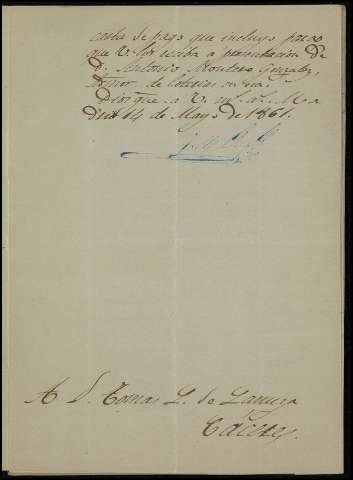 carta de pago que incluyo para
que V. los reciba a presentación de
D. Antonio Montero Gonzalez,
de Loterias en esa.
Dios gue. a V. m. a. Ma
drid 14 de Mayo de 1861.
A D. Tomas L. de Lanuza
Cáceres